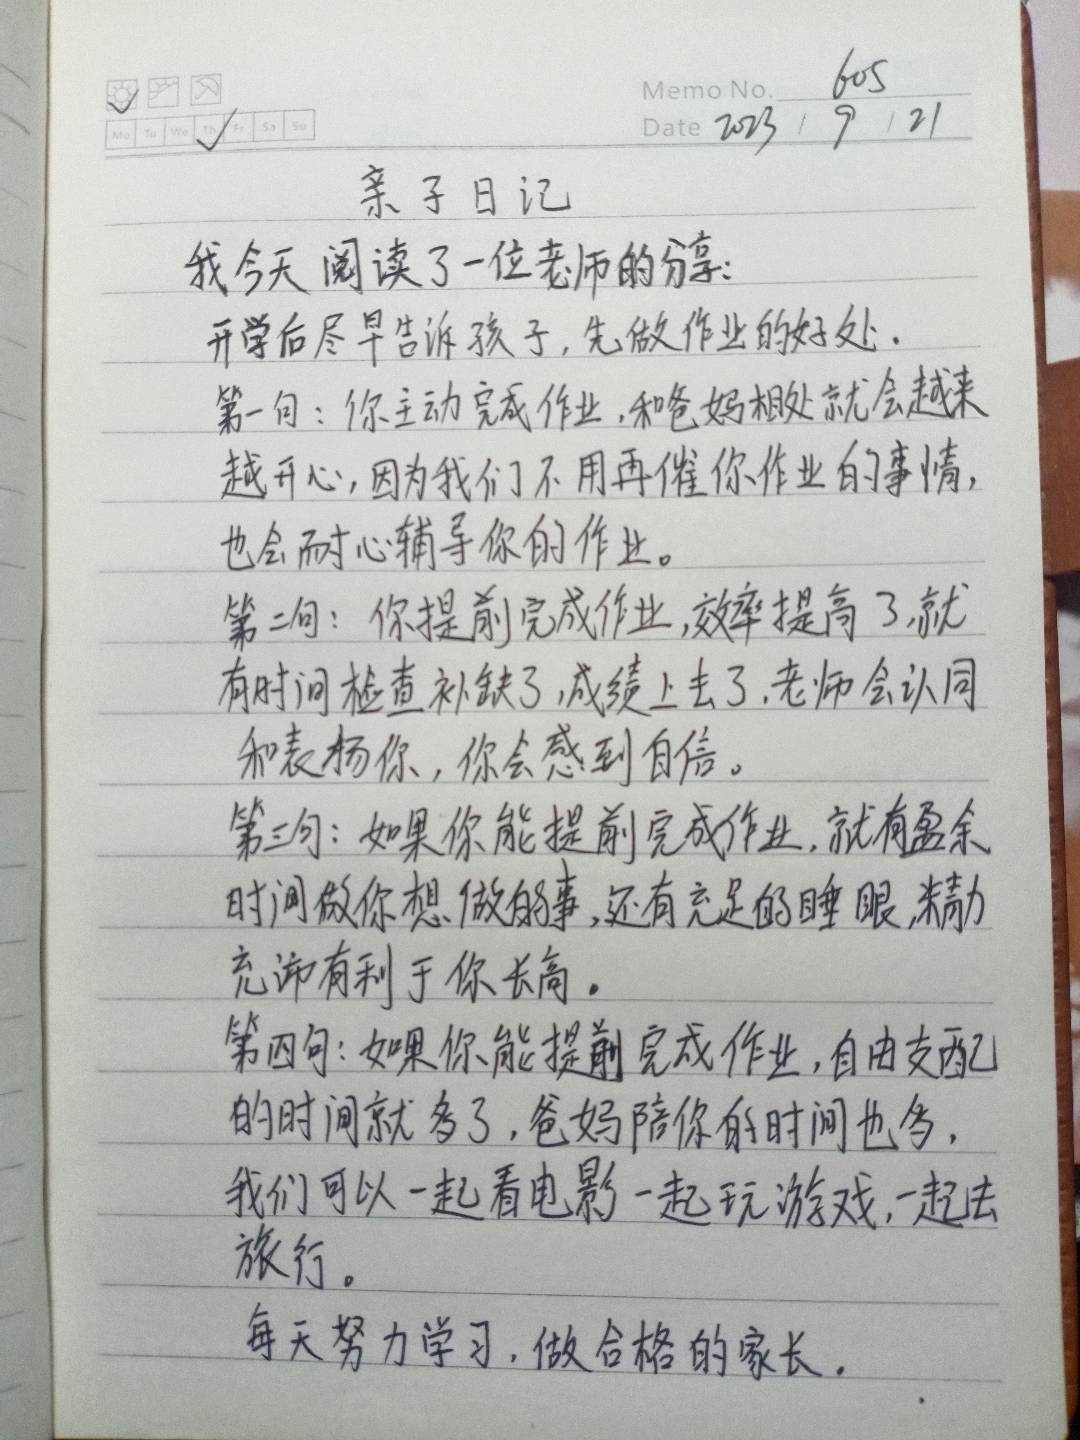 Memo No. 605
Mo Tu We Th Fr Sa Su
Date 2023 / 9 / 21
亲子日记
我今天阅读了一位老师的分享：
开学后尽早告诉孩子，先做作业的好处.
第一句：你主动完成作业，和爸妈相处就会越来
越开心，因为我们不用再催你作业的事情，
也会耐心辅导你的作业。
第二句：你提前完成作业，效率提高了，就
有时间检查补缺了，成绩上去了，老师会认同
和表扬你，你会感到自信。
第三句：如果你能提前完成作业，就有盈余
时间做你想做的事，还有充足的睡眠，精力
充沛有利于你长高.
第四句：如果你能提前完成作业，自由支配
的时间就多了，爸妈陪你的时间也多，
我们可以一起看电影一起玩游戏，一起去
旅行。
每天努力学习，做合格的家长.